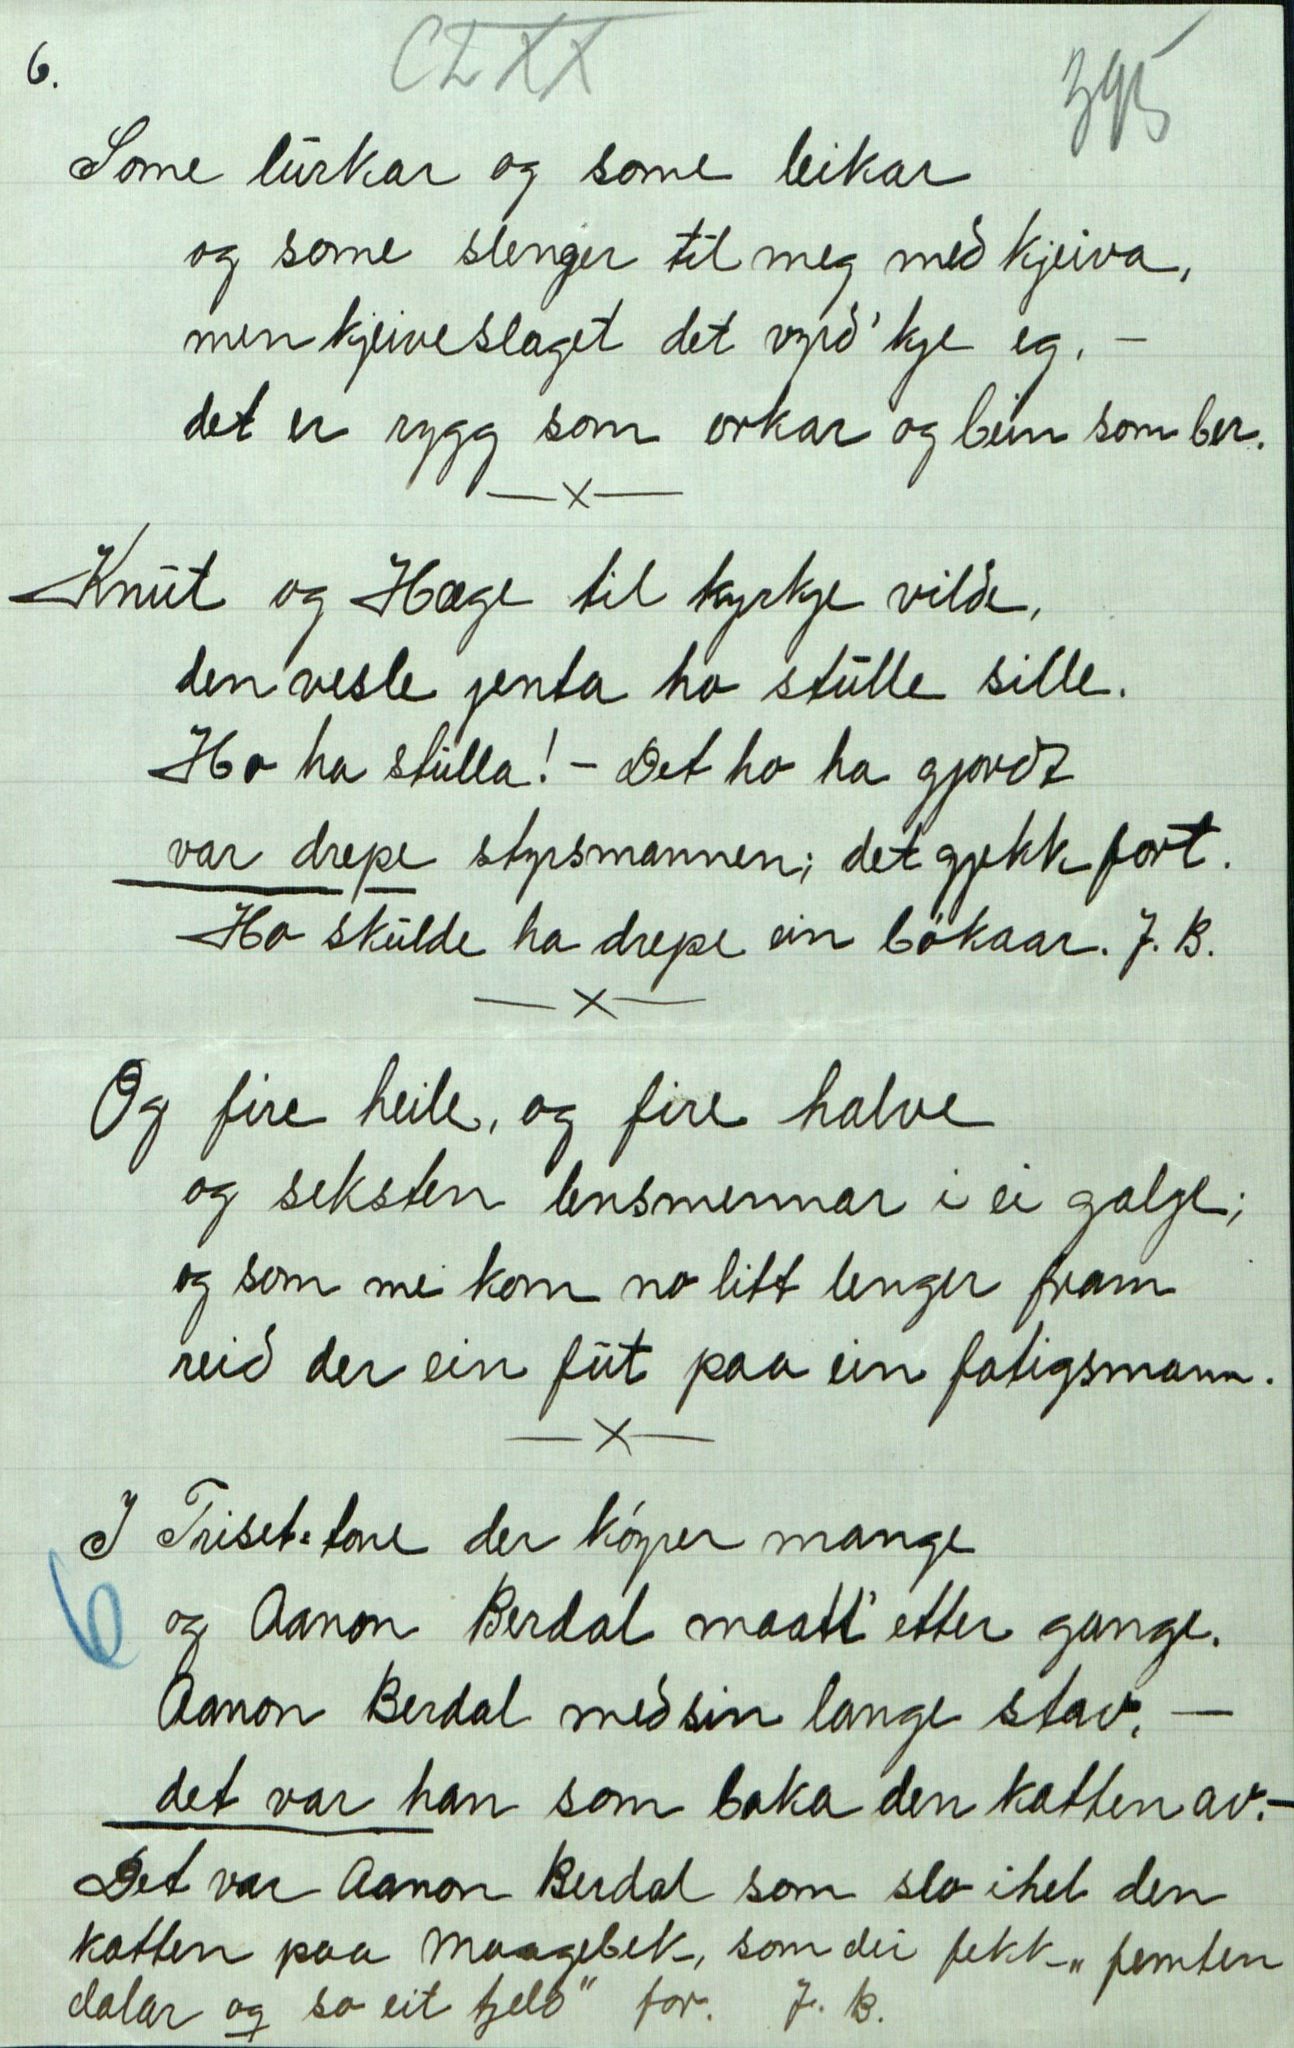 6.
CLXX
395
Some lurkar og some leikar
og some slenger til meg með kjeiva,
men kjeiveslaget det vyrð' kje eg, –
det er rygg som orkar og bein som ber.
—x—
Knut og Hæge til kyrkje vilde,
den vesle jenta ho stulle sille.
Ho ha stulla! – Det ho ha gjordt
var drepe styrsmannen; det gjekk fort.
Ho skulde ha drepe ein bökaar. J. B.
—x—
Og fire heile, og fire halve
og seksten lensmennar i ei galge;
og som me kom no litt lenger fram
reið der ein fut paa ein fatigsmann.
—x—
I Triset-tone der köyrer mange
6
og Aanon Berdal maatt' etter gange.
Aanon Berdal með sin lange stav, —
det var han som baka den katten av. –
Det var Aanon Berdal som slo ihel den
katten paa Maagebek, som dei fekk „femten
dalar og so eit fjeld" for. J. B.